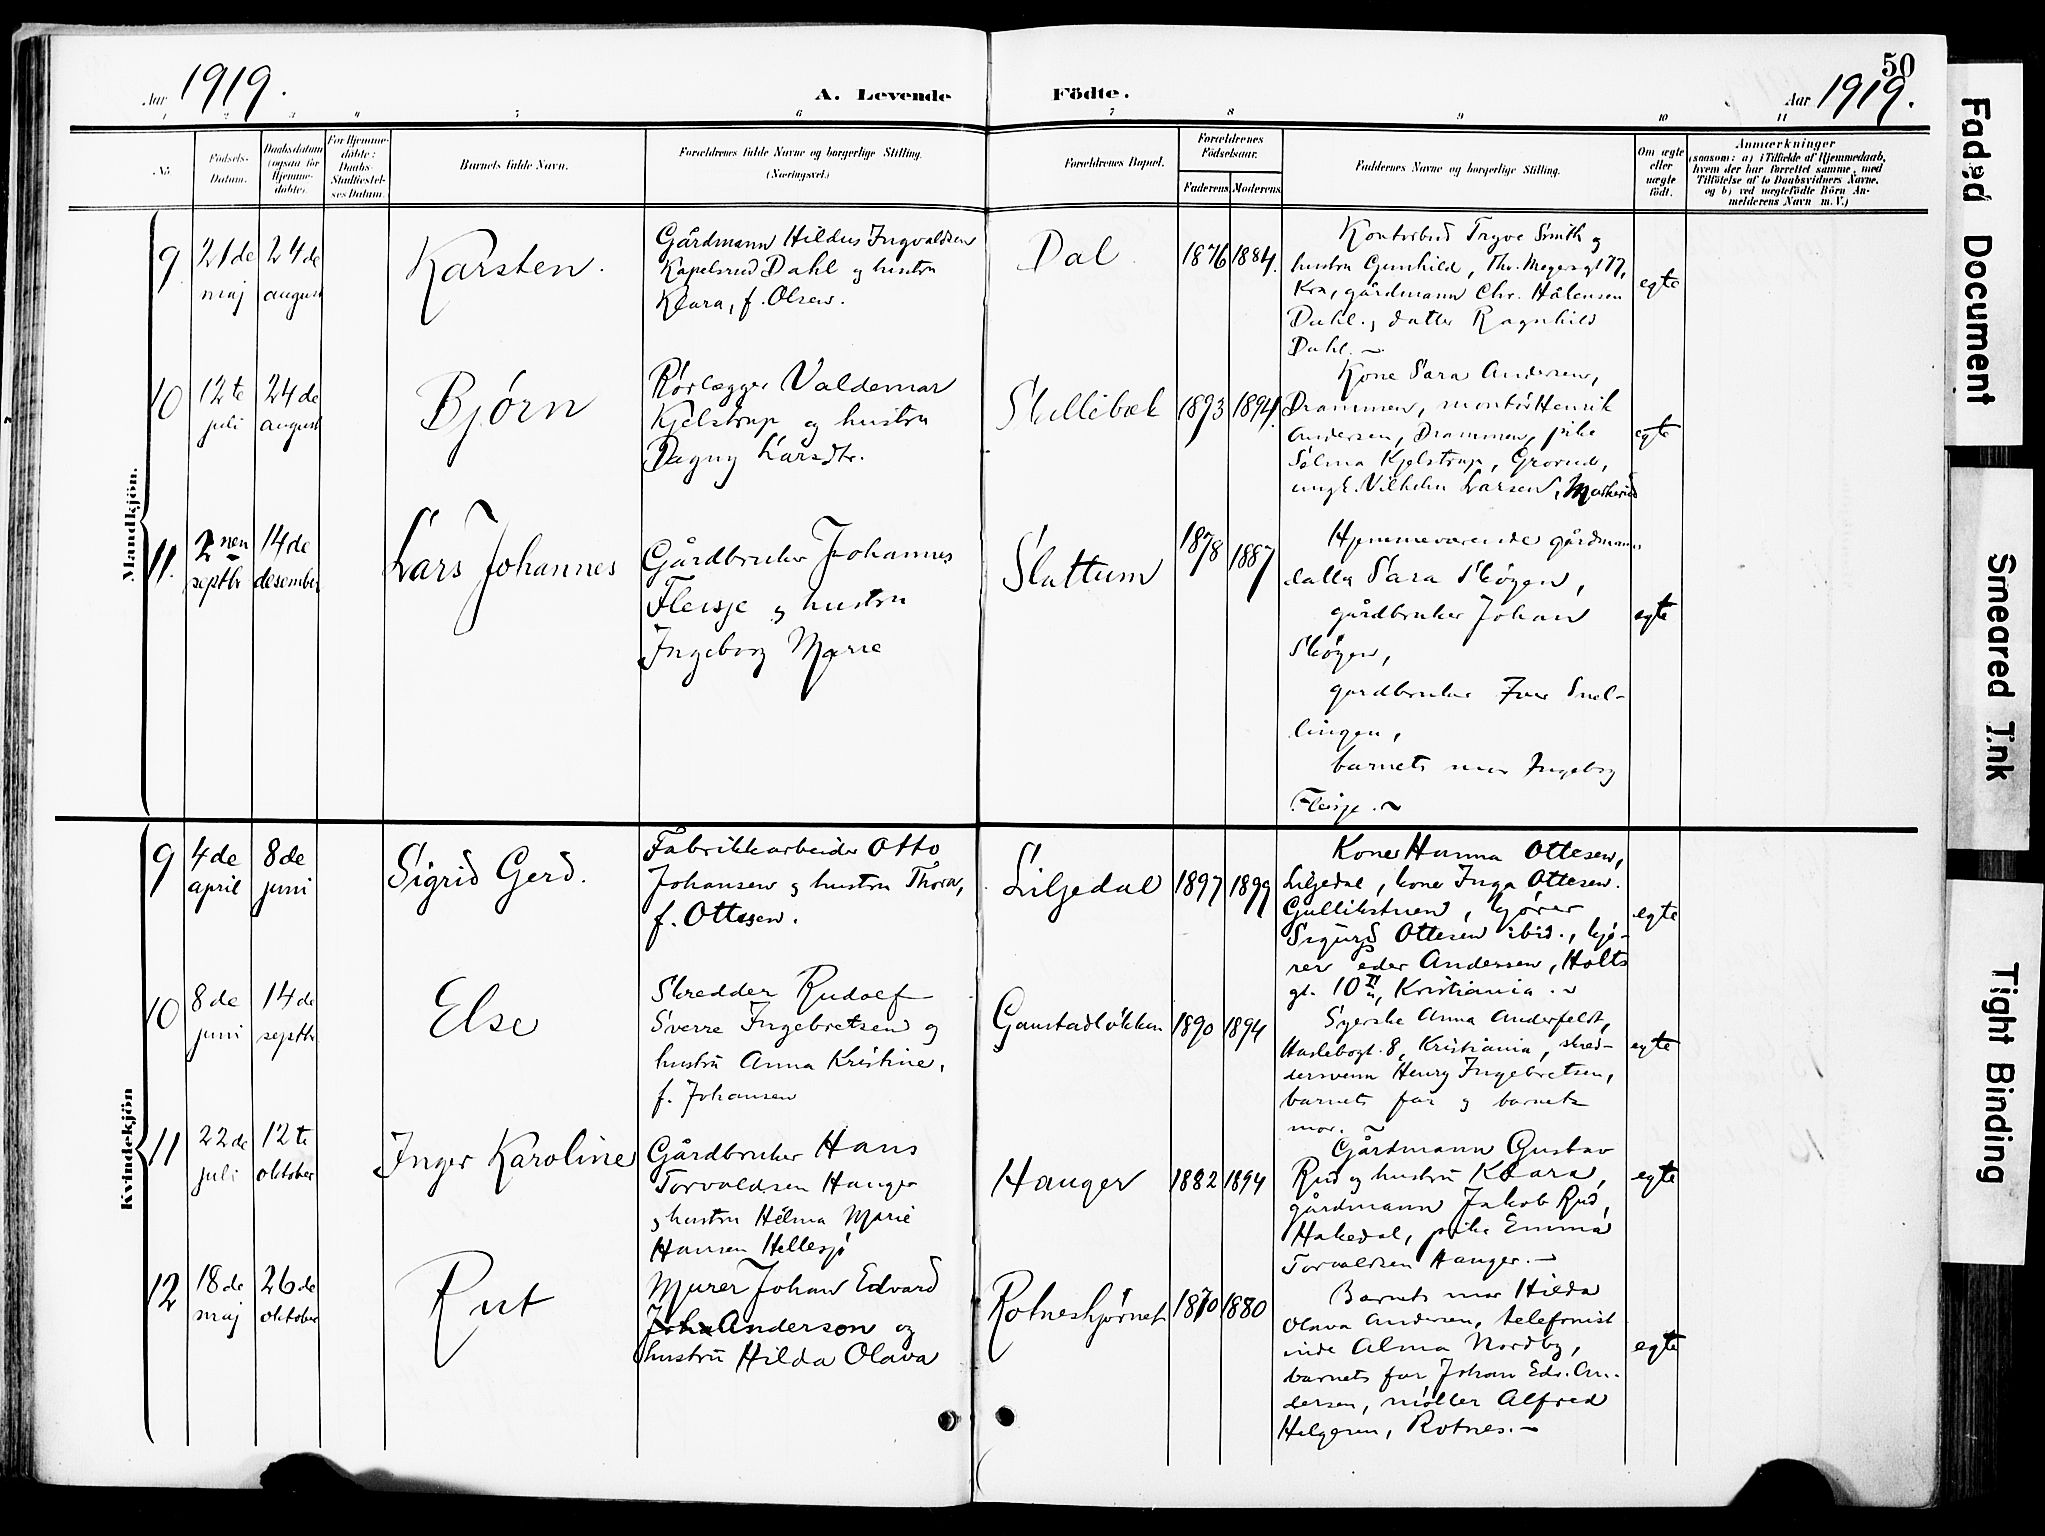 50
Aar 1919.
A. Levende Födte.
Aar 1919.
1 2 3 4 5 6 7 8 9 10 11
No
Födsels-Datum.
Daabsdatum (ogsaa for Hjemmedöbte).
For Hjemmedöbte: Daabs-Stadfæstelses Datum.
Barnets fulde Navn.
Forældrenes fulde Navne og borgerlige Stilling.
(Næringsvei.)
Forældrenes Bopæl.
Forældrenes Födselsaar.
Faderens Moderens
Faddernes Navne og borgerlige Stilling.
Om ægte eller uægte födt.
Anmærkninger
(saasom: a) i Tilfælde af Hjemmedaab,
hvem der har forrettet samme, med
Tilföielse af to Daabsvidners Navne,
og b) ved uægtefödte Börn An-
melderens Navn m. V.)
Mandkjön.
9 21de maj 24de august
Karsten.
Gårdmann Hildus Ingvaldsen
Kapelsrud Dahl og hustru
Klara, f. Olsen.
Dal 1876 1884.
Kontorbud Trygve Smith og
hustru Gunhild, Th. Meyersgt 77,
Kra, gårdmann Chr. Hålensen
Dahl, datter Ragnhild
Dahl.
egte
10 12te juli 24de august
Bjørn
Rørlægger Valdemar
Kjelstrup og hustru
Dagny Larsdtr.
Slullibæk 1893 1894.
Kone Sara Andersen,
Drammen, montør Henrik
Andersen, Drammen, pike
Selma Kjelstrup, Grorud,
ungk. Vilhelm Larsen,
egte
11. 2nen septbr 14de desember
Lars Johannes
Gårdbruker Johannes
Fleisje og hustru
Ingeborg Marie
Slattum 1878 1887
Hjemmeværende gårdmanns
datter Sara Skøgen,
gårdbruker Johan
Skøgen,
gardbruker Iver Snel-
lingen,
barnets mor Ingeborg
Fleisje.
egte
Kvindekjön
9 4de april 8de juni
Sigrid Gerd.
Fabrikkarbeider Otto
Johansen og hustru Thora,
f. Ottesen.
Liljedal 1897 1899
Kone Hanna Ottesen,
Liljedal, kone Inga Ottesen.
Gullikstuen, kjører
Sigurd Ottesen ibid., kjø-
rer Peder Andersen, Holts
gt. 10 II, Kristiania.
egte
10 8de juni 14de septbr
Else
Skredder Rudolf
Sverre Ingebretsen og
hustru Anna Kristine,
f. Johansen
Gaustadløkken 1890 1894
Syerske Anna Anderfeldt,
gt. 8, Kristiania, skred-
dersvenn Henry Ingebretsen,
barnets far og barnets
mor.
egte
11 22de juli 12te oktober
Inger Karoline
Gårdbruker Hans
Torvaldsen Hauger
og hustru Hilma Marie
Hansen Hellesjø
Hauger 1882 1894
Gårdmann Gustav
Rud og hustru Klara,
gårdmann Jakob Rud,
Hakedal, pike Emma
Torvaldsen Hauger.
egte
12 18de maj 26de oktober
Rut
Murer Johan Edvard
Anderson og
hustru Hilda Olava
Rotneshjørnet 1870 1880
Barnets mor Hilda
Olava Andersen, telefonist
inde Alma Nordby,
barnets far Johan Edv. An-
dersen, møller Alfred
Helgesen, Rotnes.
egte
Faded Document
Smeared Ink
Tight Binding